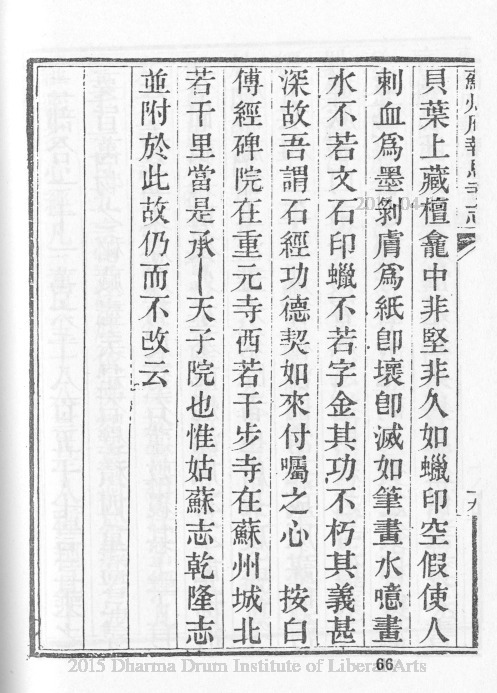 貝葉上藏檀龕中非堅非久如蠟印空假使人
刺血爲墨剥膚爲紙卽壞卽滅如筆畫水噫畫
水不若文石印蠟不若字金其功不朽其義甚
深故吾謂石經功德契如來付囑之心　按白
傅經碑院在重元寺西若干步寺在蘇州城北
若干里當是承丨天子院也惟姑蘇志乾隆志
並附於此故仍而不改云
66
2015 Dharma Drum Institute of Liberal Arts